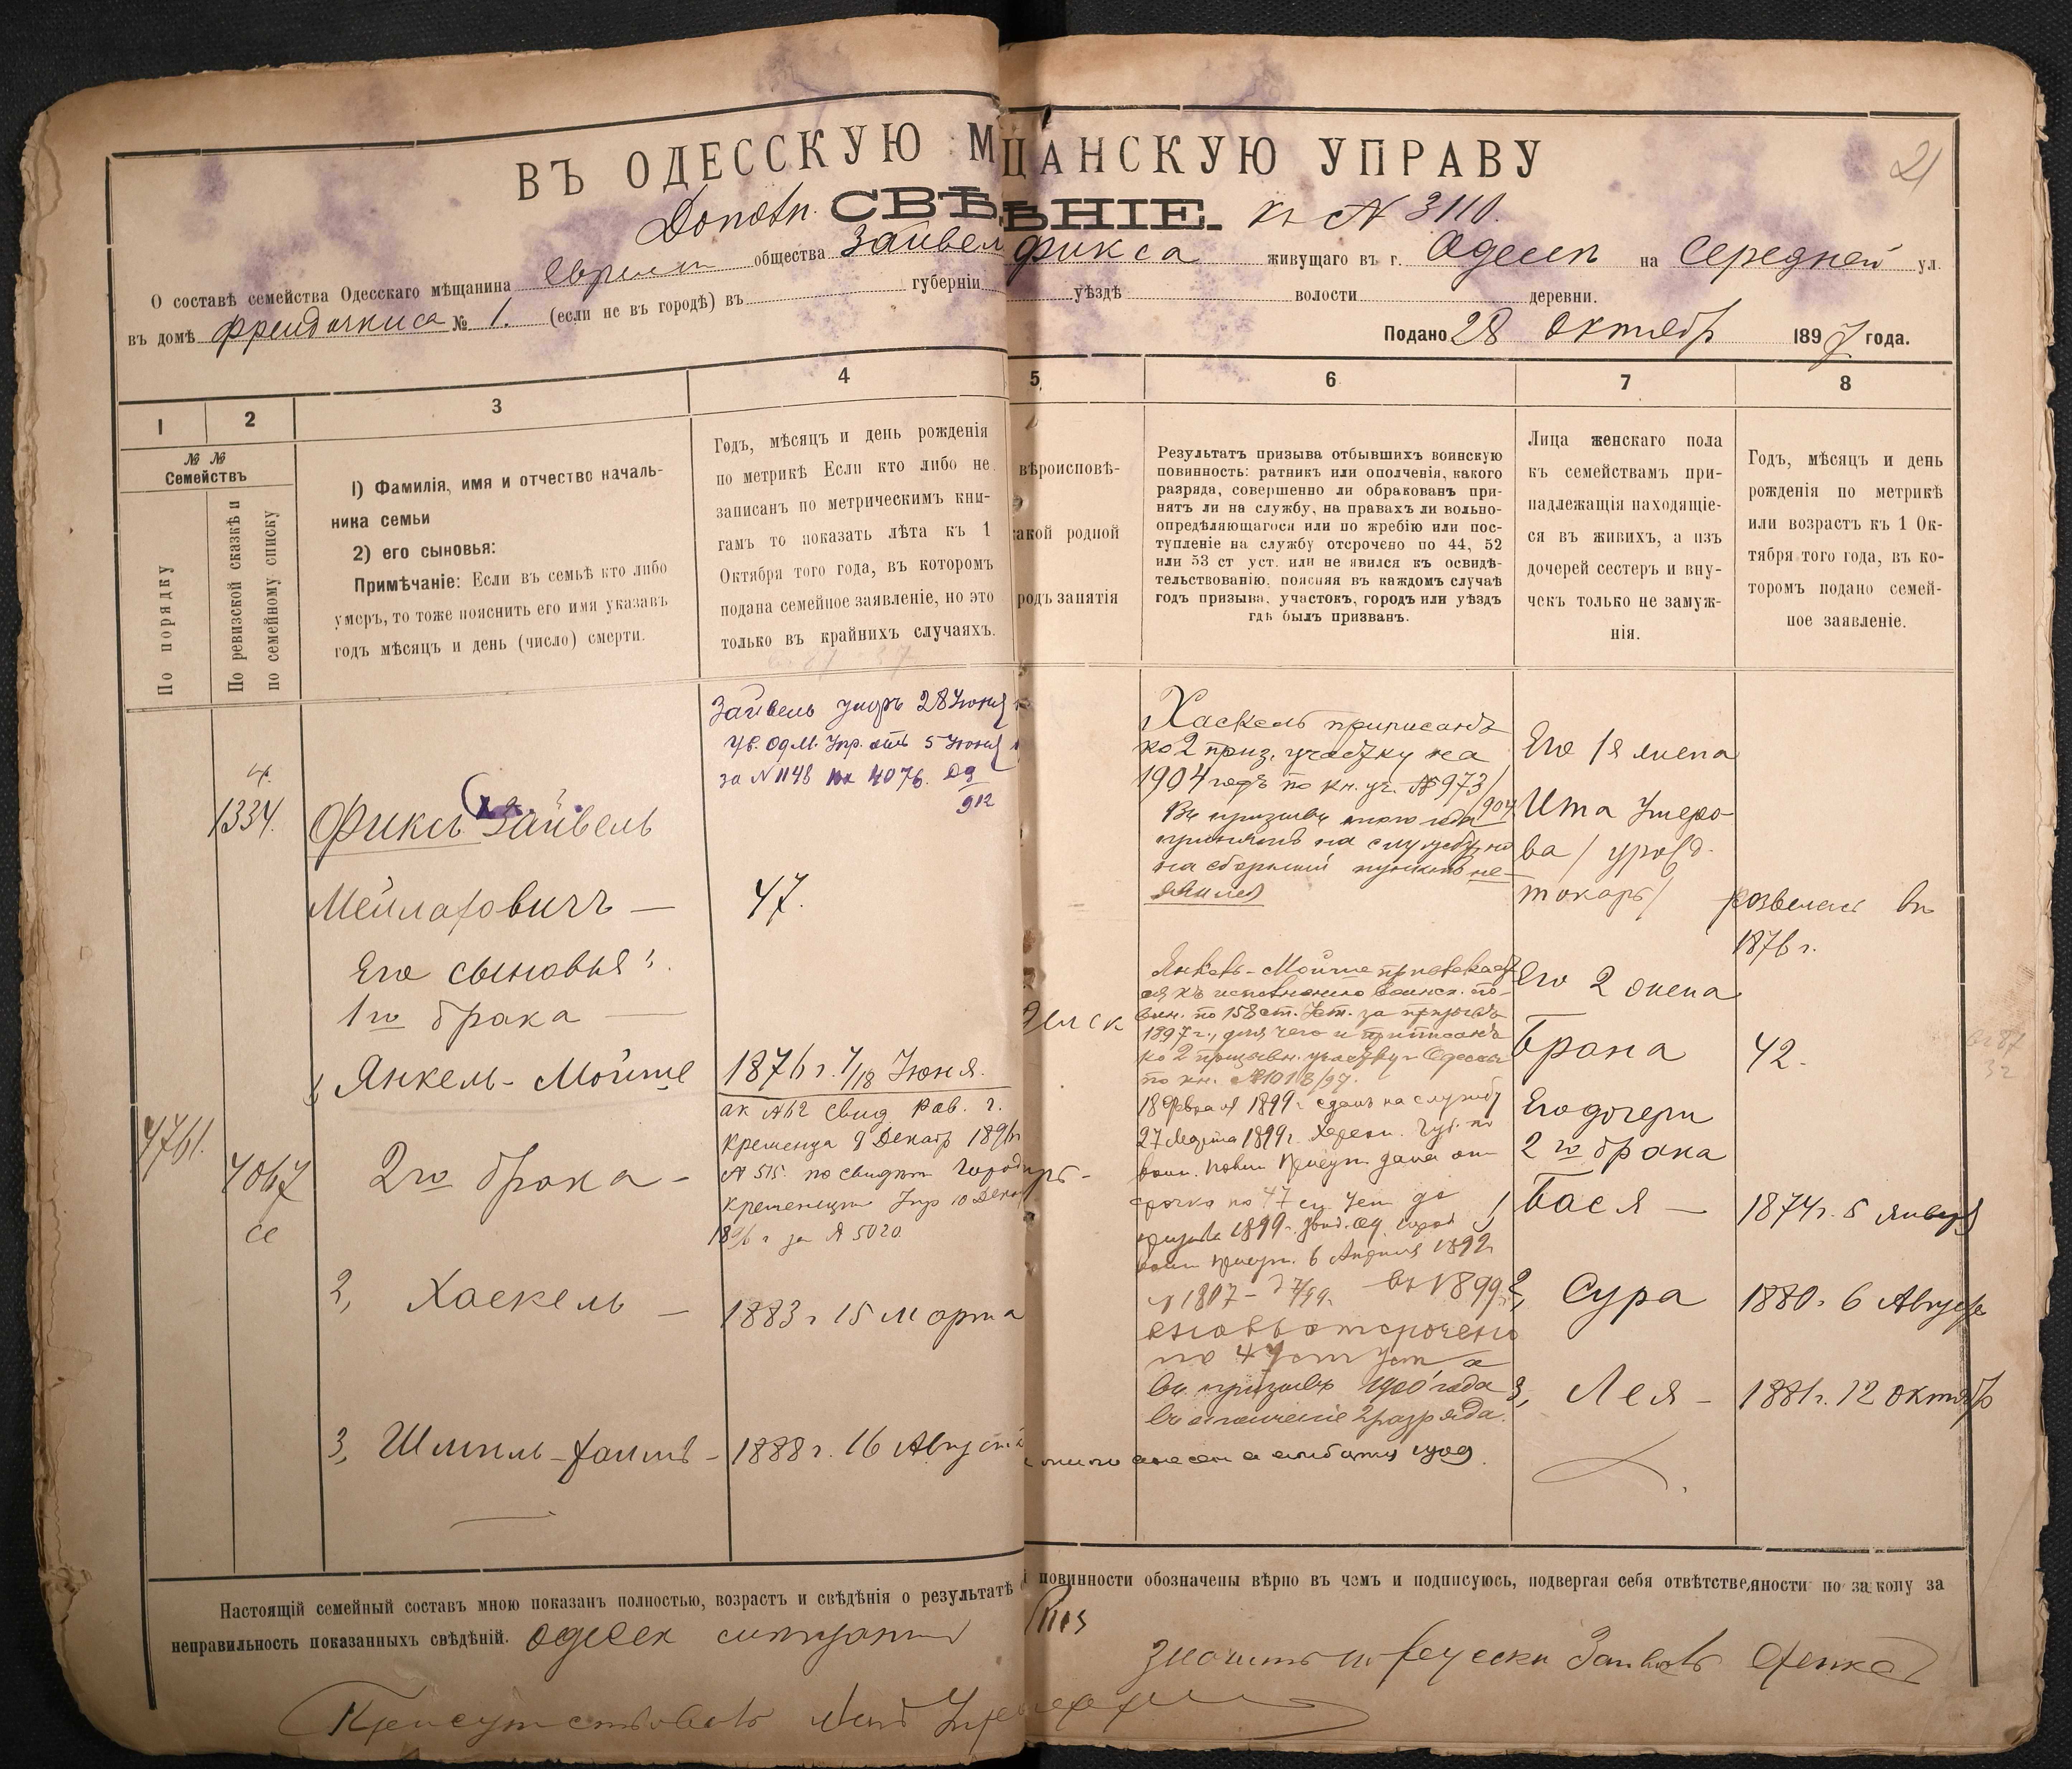 ВЪ ОДЕССКУЮ МЩАНСКУЮ УПРАВУ
21
СВѢ ѢНІЕ. къ № 3110.
О составѣ семейства Одесскаго мѣщанина еврейск общества Зайвел Фикса живущаго въ г. Одессѣ на Средней ул.
въ домѣ № 1. (если не въ городѣ) въ губерніи уѣздѣ волости деревни.
Подано 28 Октябр 1897 года.
1 2 3 4 5 6 7 8
№ №
Семействъ
По порядку
По ревизской сказкѣ и
по семейному списку
1) Фамилія, имя и отчество началь-
ника семьи
2) его сыновья:
Примѣчаніе: Если въ семьѣ кто либо
умеръ, то тоже пояснить его имя указавъ
годъ мѣсяцъ и день (число) смерти.
Годъ, мѣсяцъ и день рожденія
по метрикѣ Если кто либо не
записанъ по метрическимъ кни-
гамъ то показать лѣта къ 1
Октября того года, въ которомъ
подана семейное заявленіе, но это
только въ крайнихъ случаяхъ.
вѣроисповѣ-
акой родной
родъ занятія
Результатъ призыва отбывшихъ воинскую
повинность: ратникъ или ополченія, какого
разряда, совершенно ли обракованъ при-
нятъ ли на службу, на правахъ ли вольно-
опредѣляющагося или по жребію или пос-
тупленіе на службу отсрочено по 44, 52
или 53 ст уст. или не явился къ освидѣ-
тельствованію, поясняя въ каждомъ случаѣ
годъ призыва, участокъ, городъ или уѣздъ
гдѣ былъ призванъ.
Лица женскаго пола
къ семействамъ при-
надлежащія находящіе-
ся въ живихъ, а изъ
дочерей сестеръ и вну-
чекъ только не замуж-
нія.
Годъ, мѣсяцъ и день
рожденія по метрикѣ
или возрастъ къ 1 Ок-
тября того года, въ ко-
торомъ подано семей-
ное заявленіе.
1334.
Фиксъ Зайвель
Мейлаховичъ —
Его сыновья:
1го брака —
1, Янкель-Мойше
4761.
4067
се
2го брака —
2, Хаскель —
3, Шмиль-Хаимъ —
Зайвель умеръ 28 Июня
Ув. Од М. Упр. отъ 5 Июня
за № 1148 4076. 09
912
47.
1876 г. 7/18 Июня.
свид Рав. г.
Кременца 9 Декабр 1896
№ 515. по свидѣт Город
Кременецк Упр 10 Декаб
1896 г за № 5020
1883 г 15 марта
1888 г. 16 Августа
Хаскель приписанъ
ко 2 приз. участку на
1904 годъ по кн. уч. № 973/
904
принятъ на службу, но
на сборный пунктъ не
явился
Янкель-Мойше привлекает
ся къ исполненію воинск. по-
вин. по 158 ст. Уст. за призывъ
1897 г., для чего и приписанъ
ко 2 призывн. участку г. Одессы
по кн. № 1018/97.
18 Февраля 1899 г сданъ на службу
27 Марта 1899 г. Херсон. Губ. по
воин. повин Присут дана от
срочка по 47 ст Уст до
призыва 1899 г.
воин присут. 6 Апрѣля 1899
№ 1807 — въ 1899 г.
вновь отсрочено
по 47 ст Уст а
въ призывъ 1900 года
въ ополченіе 2 разряда.
Его 1я жена
Ита Умеро-
ва / урожд.
Токарь/
развелась въ
1876 г.
Его 2 жена
Брана
42.
Его дочери
2го брака
1, Бася —
1874 г. 5 Января
2, Сура
1880 г 6 Августа
3, Лея —
1881 г. 12 Октябр
Настоящій семейный составъ мною показанъ полностью, возрастъ и свѣдѣнія о результатѣ повинности обозначены вѣрно въ чемъ и подписуюсь, подвергая себя отвѣтственности по закону за
неправильность показанныхъ свѣдѣній.
значитъ по русски Зайвель Фикс
Присутствовалъ